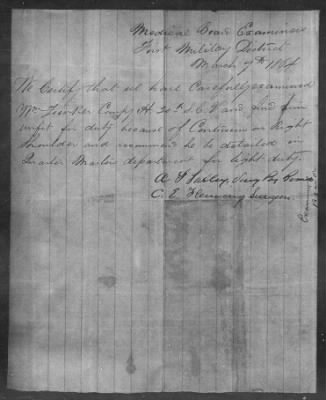 Medical Board Examiners
First Military District
March 7th 1864
We Certify that we have Carefully examined
Wm Compy H. 24th S.C.V and find him
unfit for duty because of Contusion on Right
Shoulder and recommend he be detailed in
Quarter Masters department for light duty.
A. F. Surg
C. E. Flemming Surgeon